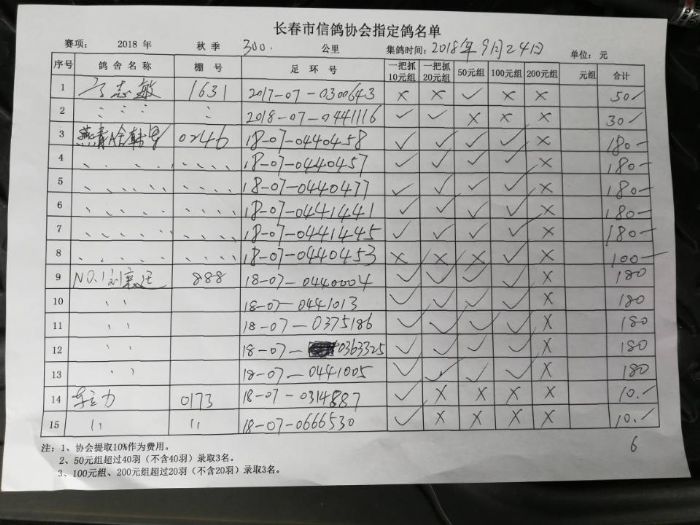 长春市信鸽协会指定鸽名单
赛项： 2018 年 秋 季 300. 公里 集鸽时间：2018年9月24日 单位：元
序号 鸽 舍 名 称 棚 号 足 环 号 一把抓10元组 一把抓20元组 50元组 100元组 200元组 元组 合计
1 志敏 1631 2017-07-0300643 × × ✓ × × 50-
2 〃 〃 〃 〃 2018-07-0441116 ✓ ✓ × × × 30-
3 0246 18-07-0440458 ✓ ✓ ✓ ✓ × 180-
4 、、、、、 、、、、 18-07-0440457 ✓ ✓ ✓ ✓ × 180-
5 、、、、、 、、、、 18-07-0440477 ✓ ✓ ✓ ✓ × 180-
6 、、、、、 、、、、 18-07-0441441 ✓ ✓ ✓ ✓ × 180-
7 、、、、、 、、、、 18-07-0441445 ✓ ✓ ✓ ✓ × 180-
8 、、、、、 、、、、 18-07-0440453 × × × ✓ × 100-
9 NO.1 888 18-07-0440004 ✓ ✓ ✓ ✓ × 180
10 〃 18-07-0441013 ✓ ✓ ✓ ✓ × 180
11 〃 18-07-0375186 ✓ ✓ ✓ ✓ × 180
12 〃 18-07-0363325 ✓ ✓ ✓ ✓ × 180
13 〃 18-07-0441005 ✓ ✓ ✓ ✓ × 180
14 力 0173 18-07-0314887 ✓ × × × × 10.-
15 〃 〃 18-07-0666530 ✓ × × × × 10.-
注：1、协会提取10%作为费用。 6
2、50元组超过40羽（不含40羽）录取3名。
3、100元组、200元组超过20羽（不含20羽）录取3名。